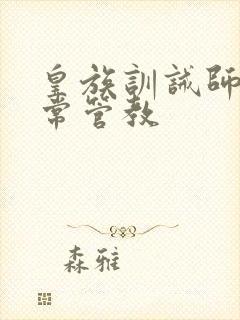 皇族訓誡師
常管教
森雅